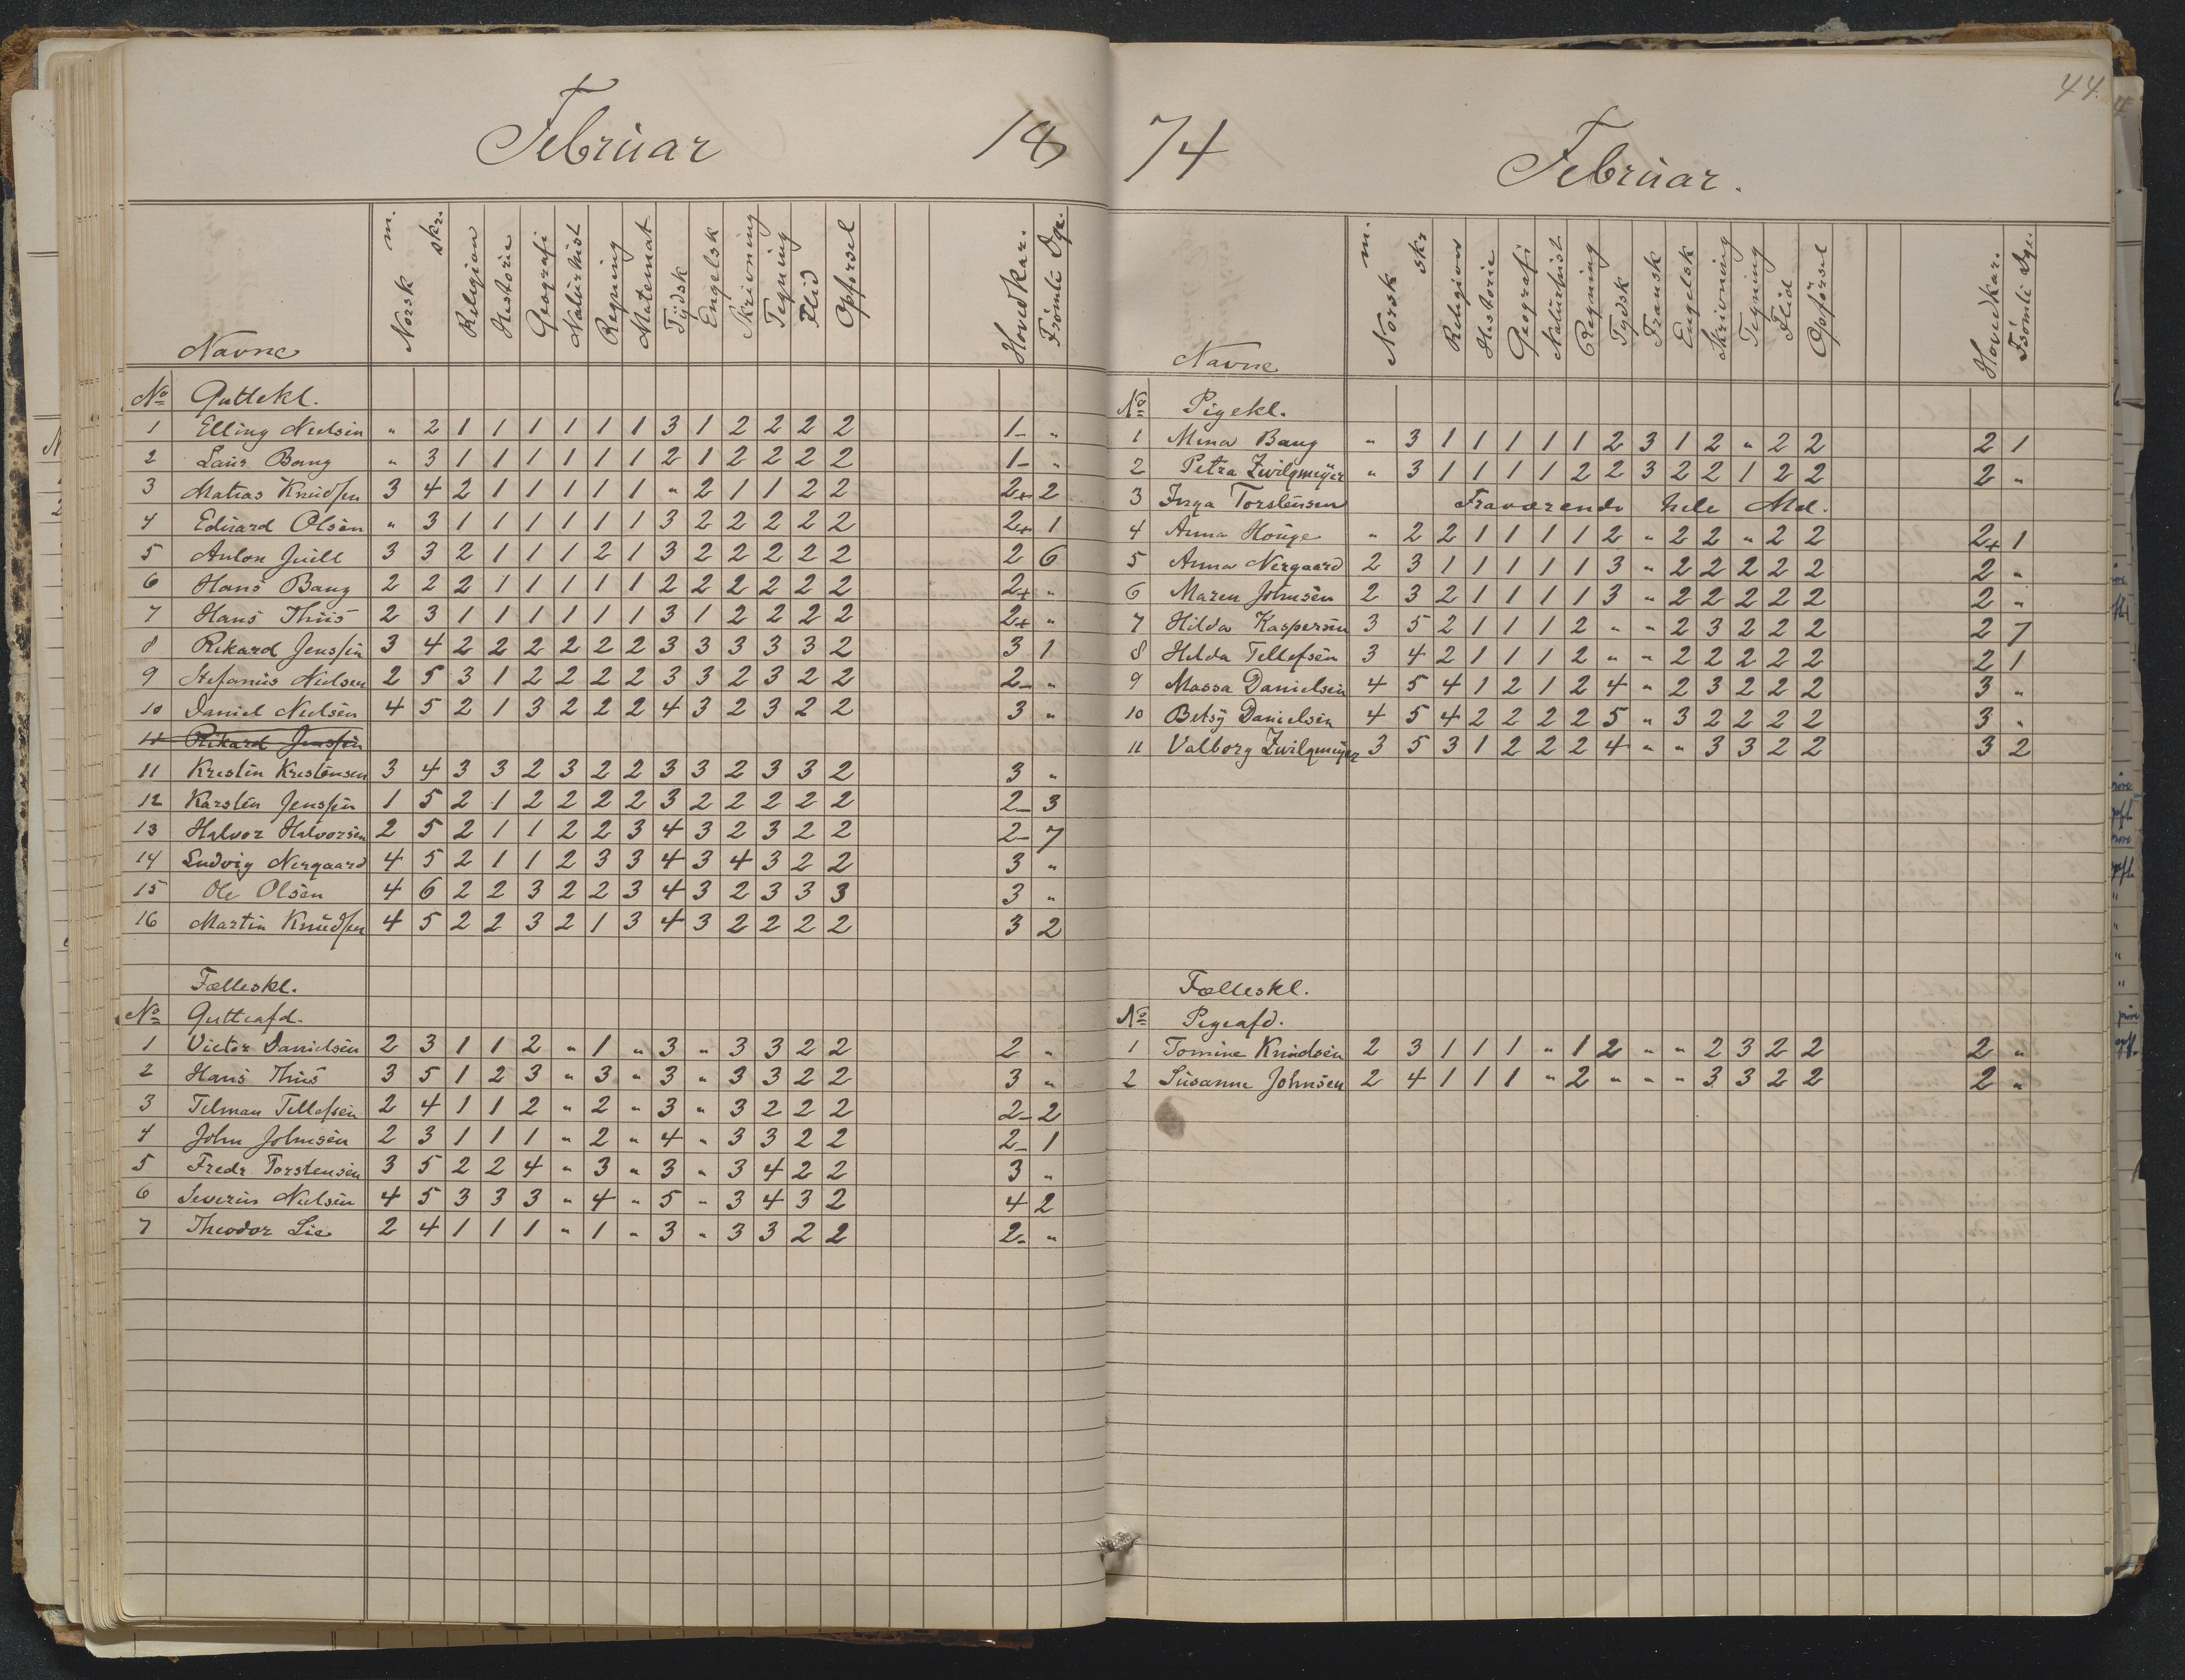 Februar 18
Navne Norsk m. skr. Religion Historie Geografi Naturhist Regning Matemat Tydsk Engelsk Skrivning Tegning Flid Opførsel Hovedkar. Frsømte Dge.
No Guttekl.
1 Elling Nielsen " 2 1 1 1 1 1 1 3 1 2 2 2 2 1- "
2 Laur Bang " 3 1 1 1 1 1 1 2 1 2 2 2 2 1- "
3 Matias Knudsen 3 4 2 1 1 1 1 1 " 2 1 1 2 2 2+ 2
4 Eduard Olsen " 3 1 1 1 1 1 1 3 2 2 2 2 2 2+ 1
5 Anton Juell 3 3 2 1 1 1 2 1 3 2 2 2 2 2 2 6
6 Hans Bang 2 2 2 1 1 1 1 1 2 2 2 2 2 2 2+ "
7 Hans Thiis 2 3 1 1 1 1 1 1 3 1 2 2 2 2 2+ "
8 Rikard Jenssen 3 4 2 2 2 2 2 2 3 3 3 3 3 2 3 1
9 Stefanus Nielsen 2 5 3 1 2 2 2 2 3 3 2 3 2 2 2- "
10 Daniel Nielsen 4 5 2 1 3 2 2 2 4 3 2 3 2 2 3 "
11 Rikard Jenssen
11 Kresten Kristensen 3 4 3 3 2 3 2 2 3 3 2 3 3 2 3 "
12 Karsten Jenssen 1 5 2 1 2 2 2 2 3 2 2 2 2 2 2- 3
13 Halvor Halvorsen 2 5 2 1 1 2 2 3 4 3 2 3 2 2 2- 7
14 Ludvig Nergaard 4 5 2 1 1 2 3 3 4 3 4 3 2 2 3 "
15 Ole Olsen 4 6 2 2 3 2 2 3 4 3 2 3 3 3 3 "
16 Martin Knudsen 4 5 2 2 3 2 1 3 4 3 2 2 2 2 3 2
Fælleskl.
No Gutteafd.
1 Victor Danielsen 2 3 1 1 2 " 1 " 3 " 3 3 2 2 2 "
2 Hans Thiis 3 5 1 2 3 " 3 " 3 " 3 3 2 2 3 "
3 Telman Tellefsen 2 4 1 1 2 " 2 " 3 " 3 2 2 2 2- 2
4 John Johnsen 2 3 1 1 1 " 2 " 4 " 3 3 2 2 2- 1
5 Fredr Torstensen 3 5 2 2 4 " 3 " 3 " 3 4 2 2 3 "
6 Severin Nielsen 4 5 3 3 3 " 4 " 5 " 3 4 3 2 4 2
7 Theodor Lie 2 4 1 1 1 " 1 " 3 " 3 3 2 2 2- "
44.
74 Februar.
Navne Norsk m. skr. Religion Historie Geografi Naturhist. Regning Tydsk Fransk Engelsk Skrivning Tegning Flid Opførsel Hovedkar. Fsømte Dge.
No Pigekl.
1 Mina Bang " 3 1 1 1 1 1 2 3 1 2 " 2 2 2 1
2 Petra Zwilgmeÿer " 3 1 1 1 1 2 2 3 2 2 1 2 2 2 "
3 Inga Torstensen Fraværende hele Md.
4 Anna Houge " 2 2 1 1 1 1 2 " 2 2 " 2 2 2+ 1
5 Anna Nergaard 2 3 1 1 1 1 1 3 " 2 2 2 2 2 2 "
6 Maren Johnsen 2 3 2 1 1 1 1 3 " 2 2 2 2 2 2 "
7 Hilda Kaspersen 3 5 2 1 1 1 2 " " 2 3 2 2 2 2 7
8 Hilda Tellefsen 3 4 2 1 1 1 2 " " 2 2 2 2 2 2 1
9 Massa Danielsen 4 5 4 1 2 1 2 4 " 2 3 2 2 2 3 "
10 Betsÿ Danielsen 4 5 4 2 2 2 2 5 " 3 2 2 2 2 3 "
11 Valborg Zwilgmeÿer 3 5 3 1 2 2 2 4 " " 3 3 2 2 3 2
Fælleskl.
No Pigeafd.
1 Tomine Knudsen 2 3 1 1 1 " 1 2 " " 2 3 2 2 2 "
2 Susanne Johnsen 2 4 1 1 1 " 2 " " " 3 3 2 2 2 "